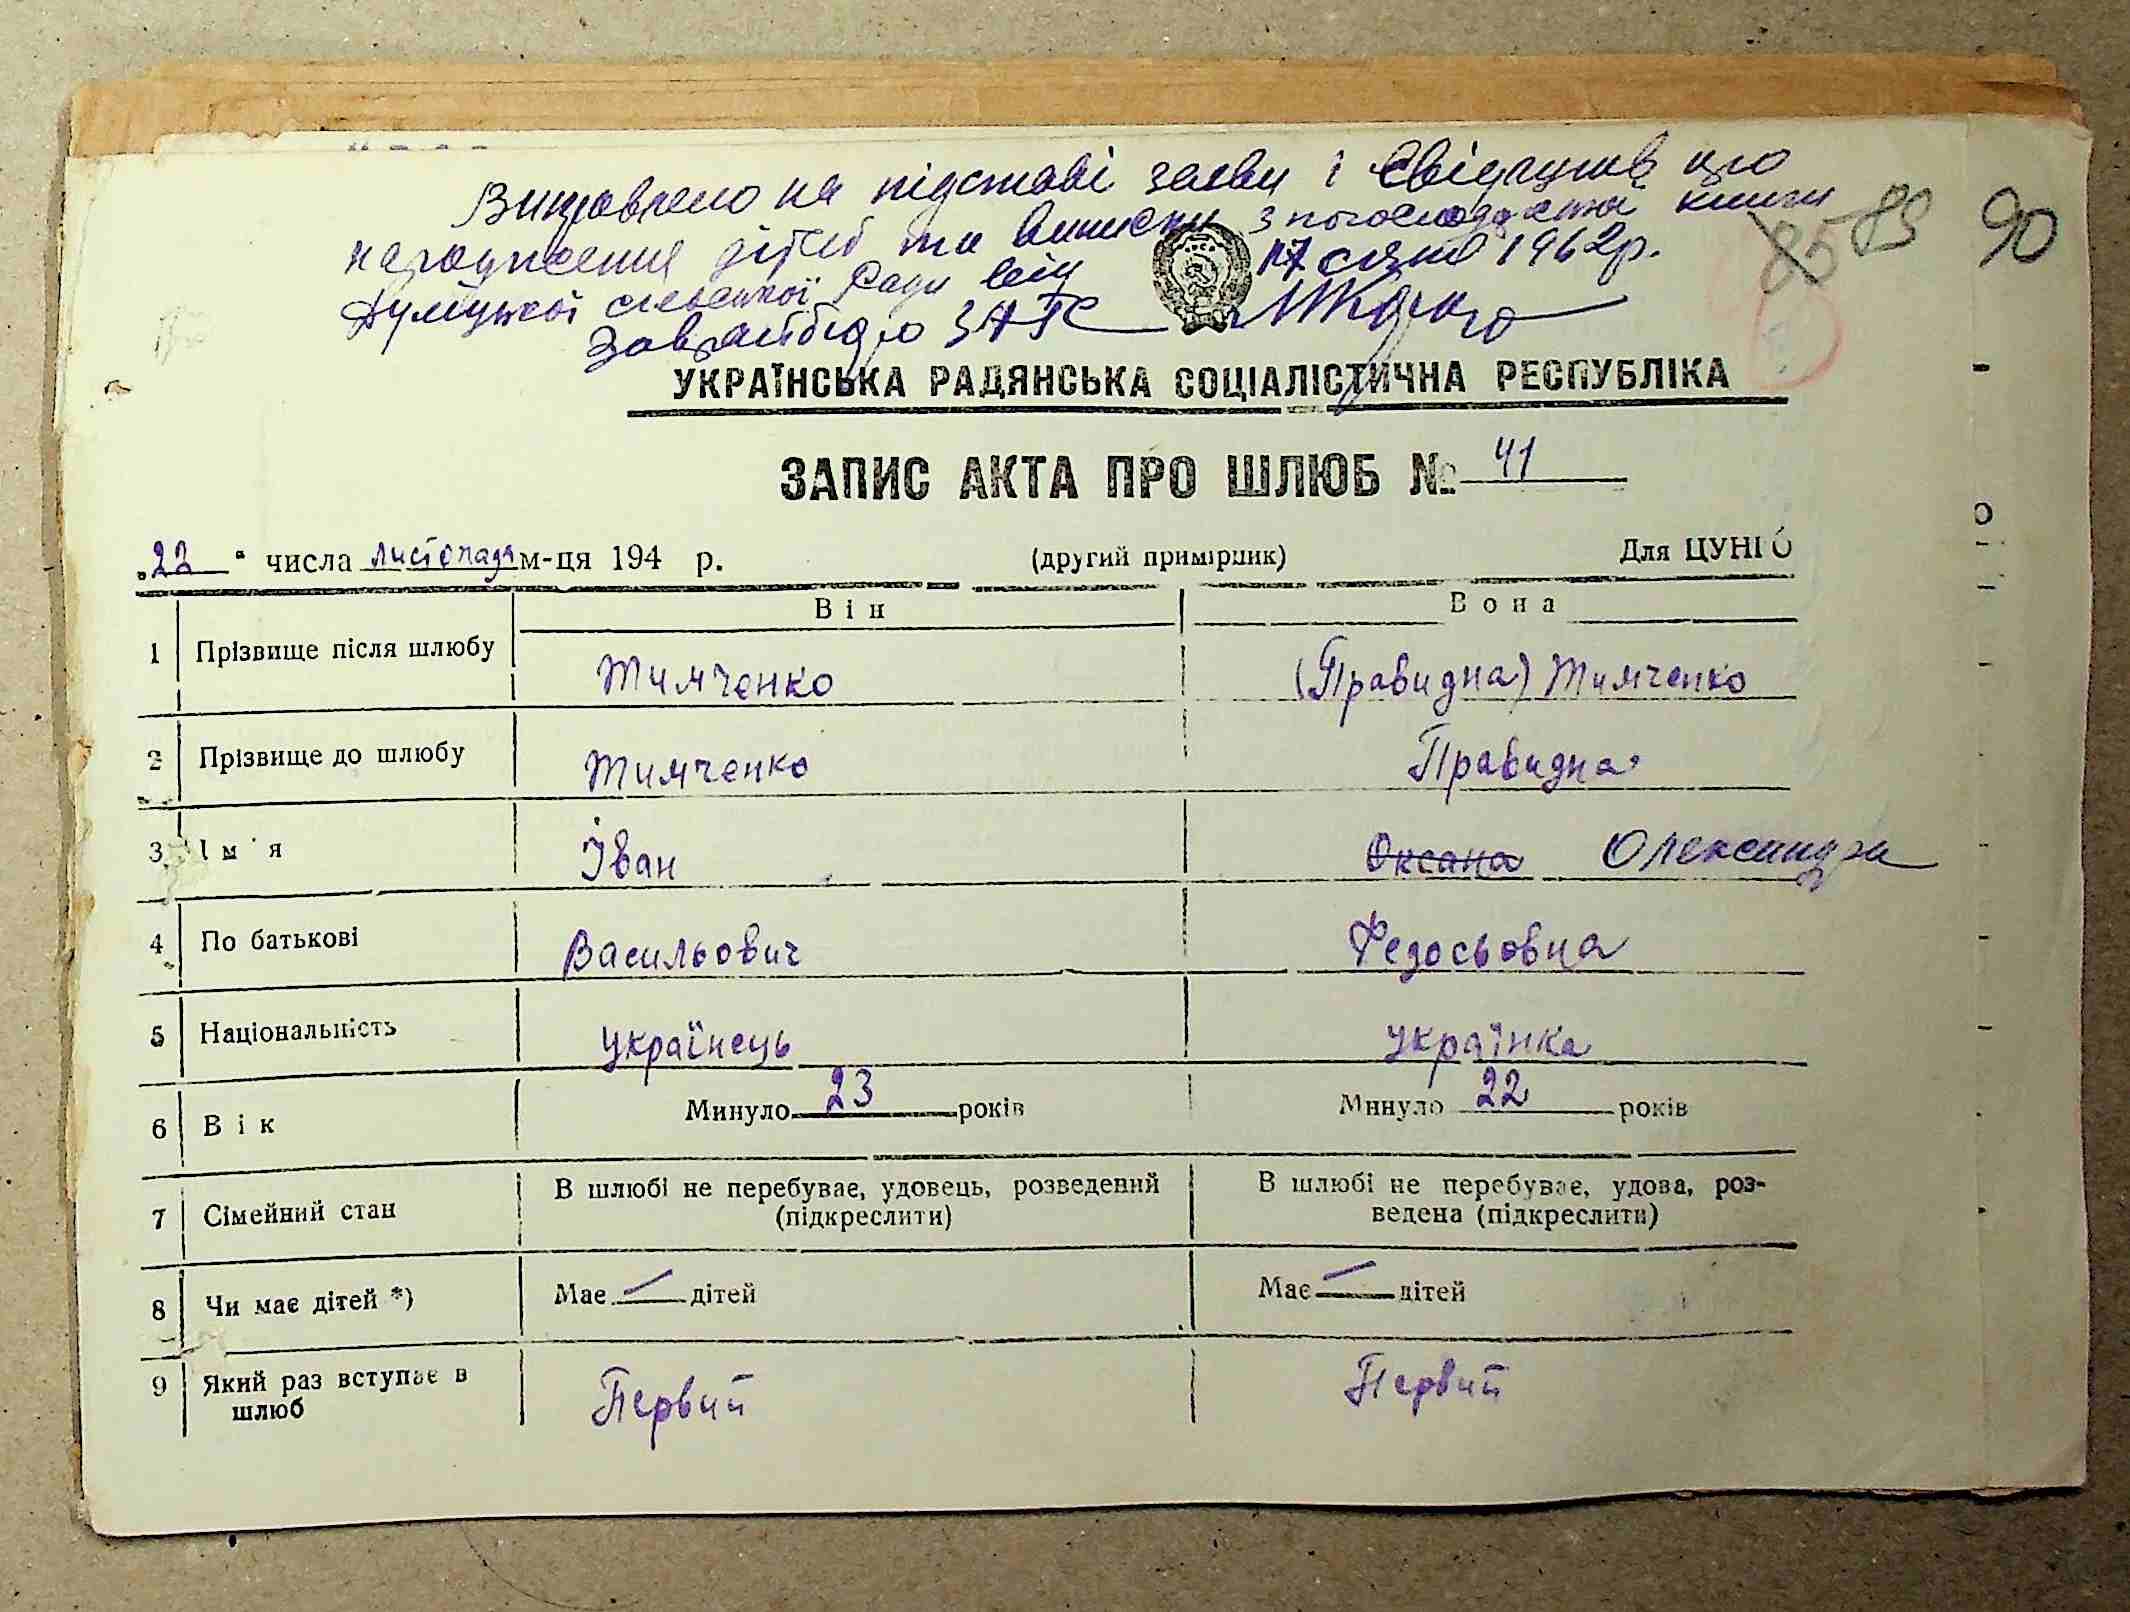 Виправлено на підставі заяви і свідоцтв про
народження дітей та виписки з погосподарської книги
сільської Ради від 17 січня 1962р.
Заврайбюро ЗАГС
85 89 90
УКРАЇНСЬКА РАДЯНСЬКА СОЦІАЛІСТИЧНА РЕСПУБЛІКА
ЗАПИС АКТА ПРО ШЛЮБ № 41
„22“ числа листопада м-ця 194 р. (другий примірник) Для ЦУНГО
Він Вона
1 Прізвище після шлюбу Тимченко (Правидна) Тимченко
2 Прізвище до шлюбу Тимченко Правидна
3 Ім'я Іван Оксана Олександра
4 По батькові Васильович Федосьовна
5 Національність українець українка
6 Вік Минуло 23 років Минуло 22 років
7 Сімейний стан В шлюбі не перебуває, удовець, розведений (підкреслити) В шлюбі не перебуває, удова, роз-
ведена (підкреслити)
8 Чи має дітей *) Має — дітей Має — дітей
9 Який раз вступає в Первий Первий
шлюб